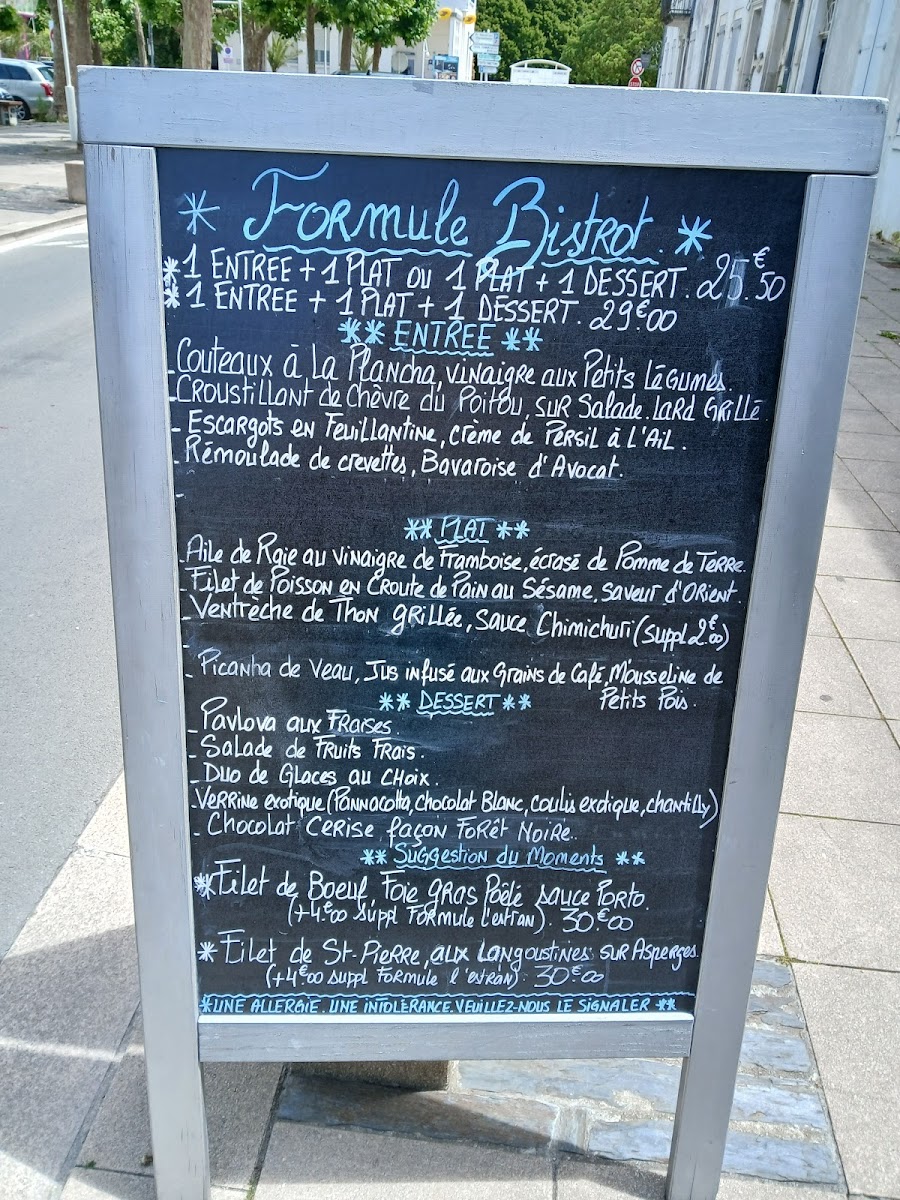 * Formule Bistrot. *
* 1 ENTREE + 1 PLAT ou 1 PLAT + 1 DESSERT. 25.€50
* 1 ENTREE + 1 PLAT + 1 DESSERT. 29€00
** ENTREE **
- Couteaux à La Plancha, vinaigre aux Petits Légumes.
- Croustillant de Chêvre du Poitou, sur Salade. Lard Grillé
- Escargots en Feuillantine, crème de Persil à l'Ail.
- Rémoulade de crevettes, Bavaroise d'Avocat.
-
** PLAT **
- Aile de Raie au vinaigre de Framboise, écrasé de Pomme de Terre.
- Filet de Poisson en Croute de Pain au Sésame, saveur d'Orient.
- Ventrèche de Thon grillée, sauce Chimichuri (suppl 2€00)
-
- Picanha de Veau, Jus infusé aux Grains de Café, Mousseline de
Petits Pois.
** DESSERT **
- Pavlova aux Fraises.
- Salade de Fruits Frais.
- Duo de Glaces au Choix.
- Verrine exotique (Pannacotta, chocolat Blanc, coulis exotique, chantilly)
- Chocolat Cerise façon Forêt Noire.
** Suggestion du Moments **
* Filet de Boeuf, Foie gras Poêlé sauce Porto.
(+4€00 suppl Formule l'estran). 30€00
* Filet de St-Pierre, aux Langoustines sur Asperges.
(+4€00 suppl Formule l'estran). 30€00
* UNE ALLERGIE. UNE INTOLÈRANCE. VEUILLEZ-NOUS LE SIGNALER **